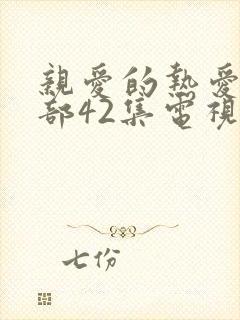 親愛的熱愛
部42集電視
七份